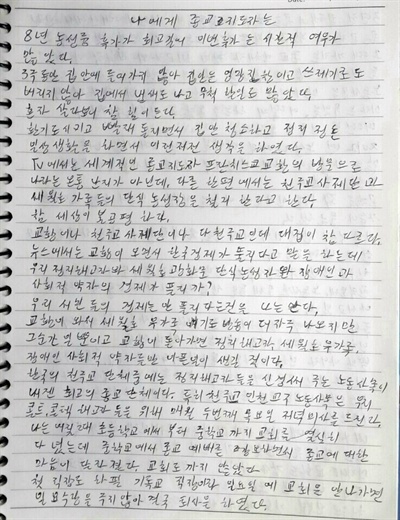 나에게 종교지도자는
8년 농성중 휴가가 최고길어 이번휴가는 시간적 여유가
많았다.
3주동안 집안에 들어가지 않아 집안은 엉망진창이고 쓰레기로도
버리지 않아 집에서 냄새도 나고 무척 할일도 많았다.
혼자 살다보니 참 힘이든다.
환기도 시키고 빨래 돌리면서 집안 청소하고 정리 정돈
일상생활을 하면서 이런저런 생각을 하였다.
TV에서는 세계적인 종교지도자 프란치스코교황의 방문으로
나라는 온통 난리가 아닌데, 다른 한편에서는 천주교사제단과
세월호 가족들의 단식 농성장을 철거 한다고 한다.
참 세상이 불공평 하다.
교황이나 천주교사제단이나 다 천주교인데 대접이 참 다르다.
뉴스에서는 교황이 오면서 한국경제가 좋아진다고 말을 하는데
우리 정리해고자와 세월호광화문 단식농성자와 장애인과
사회적 약자의 경제가 좋아지나?
우리 서민 들의 경제는 안 좋아지는걸 나는 안다.
교황이 와서 세월호 유가족 얘기도 방송에 대자주 나오지만
그순간 일뿐이고 교황이 돌아가면 정리해고자, 세월호유가족,
장애인 사회적 약자들만 나뒹굴이 생길 것이다.
한국의 천주교 단체중에는 정리해고자 들을 신경써서 주는 노동사목이
내겐 최고의 종교단체이다. 특히천주교인천교구노동사목은 우리
콜트, 콜텍 해고자 들을 위해 매월 두번째 목요일 저녁미사를 드린다.
나는 어릴때 초등학교에서 부터 중학교까지 교회를 열심히
다녔는데 중학교에서 종교 예배를 해보면서 종교에 대한
마음이 달라졌다. 교회도가지 않았다
첫 직장도 하필 기독교 직장이라 일요일에 교회를 안나가면
일요수당을 주지않아 결국 퇴사을 하였다.